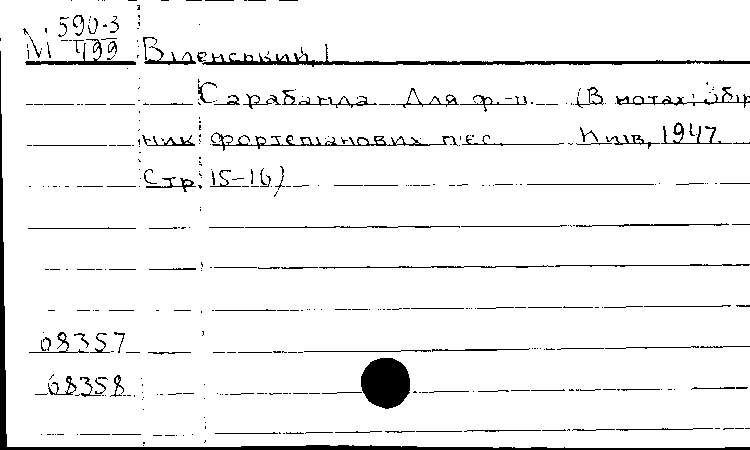 М 590-3
499 Віленський, І
Сарабанда. Для ф.-п. (В нотах: Збір
ник фортепіанових п'єс. Київ, 1947.
Стр. 15-16)
68357
68358